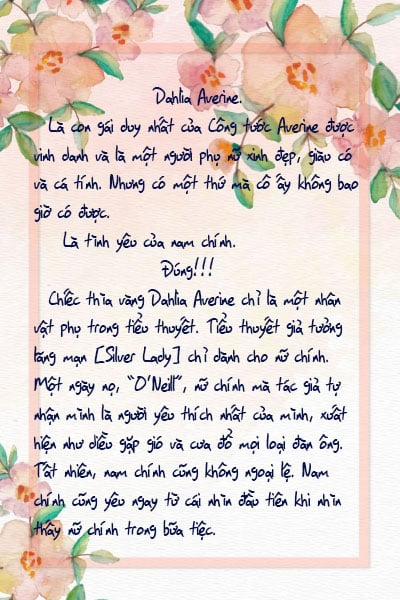 Dahlia Averine.
Là con gái duy nhất của Công tước Averine được
vinh danh và là một người phụ nữ xinh đẹp, giàu có
và cá tính. Nhưng có một thứ mà cô ấy không bao
giờ có được.
Là tình yêu của nam chính.
Đúng!!!
Chiếc thìa vàng Dahlia Averine chỉ là một nhân
vật phụ trong tiểu thuyết. Tiểu thuyết giả tưởng
lãng mạn [Silver Lady] chỉ dành cho nữ chính.
Một ngày nọ, "O'Neill", nữ chính mà tác giả tự
nhận mình là người yêu thích nhất của mình, xuất
hiện như diều gặp gió và cưa đổ mọi loại đàn ông.
Tất nhiên, nam chính cũng không ngoại lệ. Nam
chính cũng yêu ngay từ cái nhìn đầu tiên khi nhìn
thấy nữ chính trong bữa tiệc.